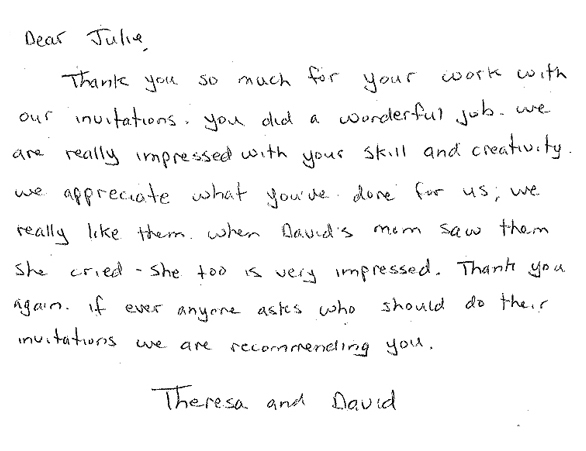 Dear Julie,
Thank you so much for your work with
our invitations. you did a wonderful job. we
are really impressed with your skill and creativity.
we appreciate what you've done for us; we
really like them. when David's mom saw them
she cried - she too is very impressed. Thank you
again. if ever anyone asks who should do their
invitations we are recommending you.
Theresa and David